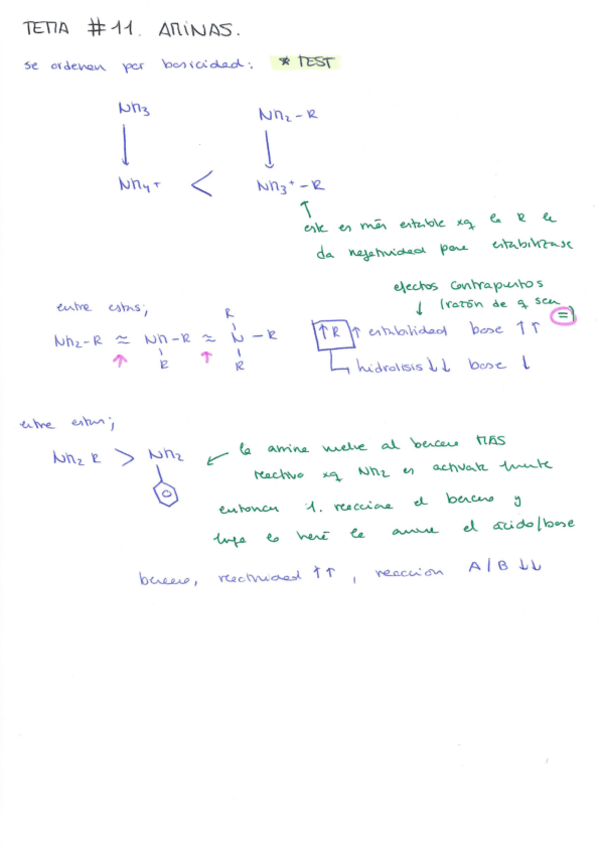 TEMA #11. AMINAS.
se ordenan por basicidad: * TEST
NH3 NH2-R
NH4+ < NH3+-R
este es más estable xq la R le
da negatividad para estabilizarse
efectos contrapuestos
(razón de q sean =)
entre estas;
R
NH2-R ≈ NH-R ≈ N-R
R R
↑R ↑ estabilidad base ↑↑
hidrolisis ↓↓ base ↓
entre estas;
NH2 R > NH2
la amina vuelve al benceno MÁS
reactivo xq NH2 es activante fuerte
entonces 1. reacciona el benceno y
luego la amina el ácido/base
benceno, reactividad ↑↑, reacción A/B ↓↓